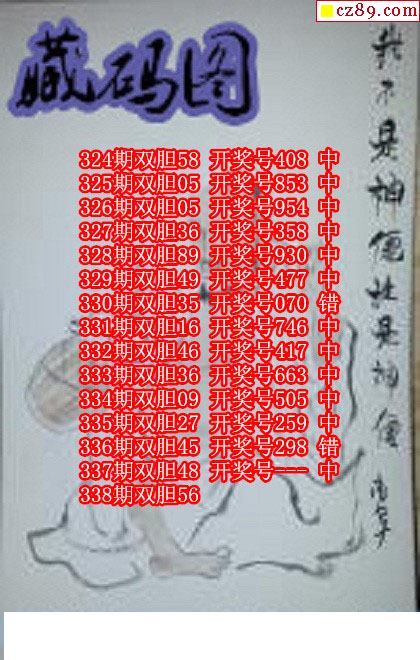 cz89.com
藏码图
324期双胆58 开奖号408 中
325期双胆05 开奖号853 中
326期双胆05 开奖号954 中
327期双胆36 开奖号358 中
328期双胆89 开奖号930 中
329期双胆49 开奖号477 中
330期双胆35 开奖号070 错
331期双胆16 开奖号746 中
332期双胆46 开奖号417 中
333期双胆36 开奖号663 中
334期双胆09 开奖号505 中
335期双胆27 开奖号259 中
336期双胆45 开奖号298 错
337期双胆48 开奖号--- 中
338期双胆56
我不是神僧谁是神僧